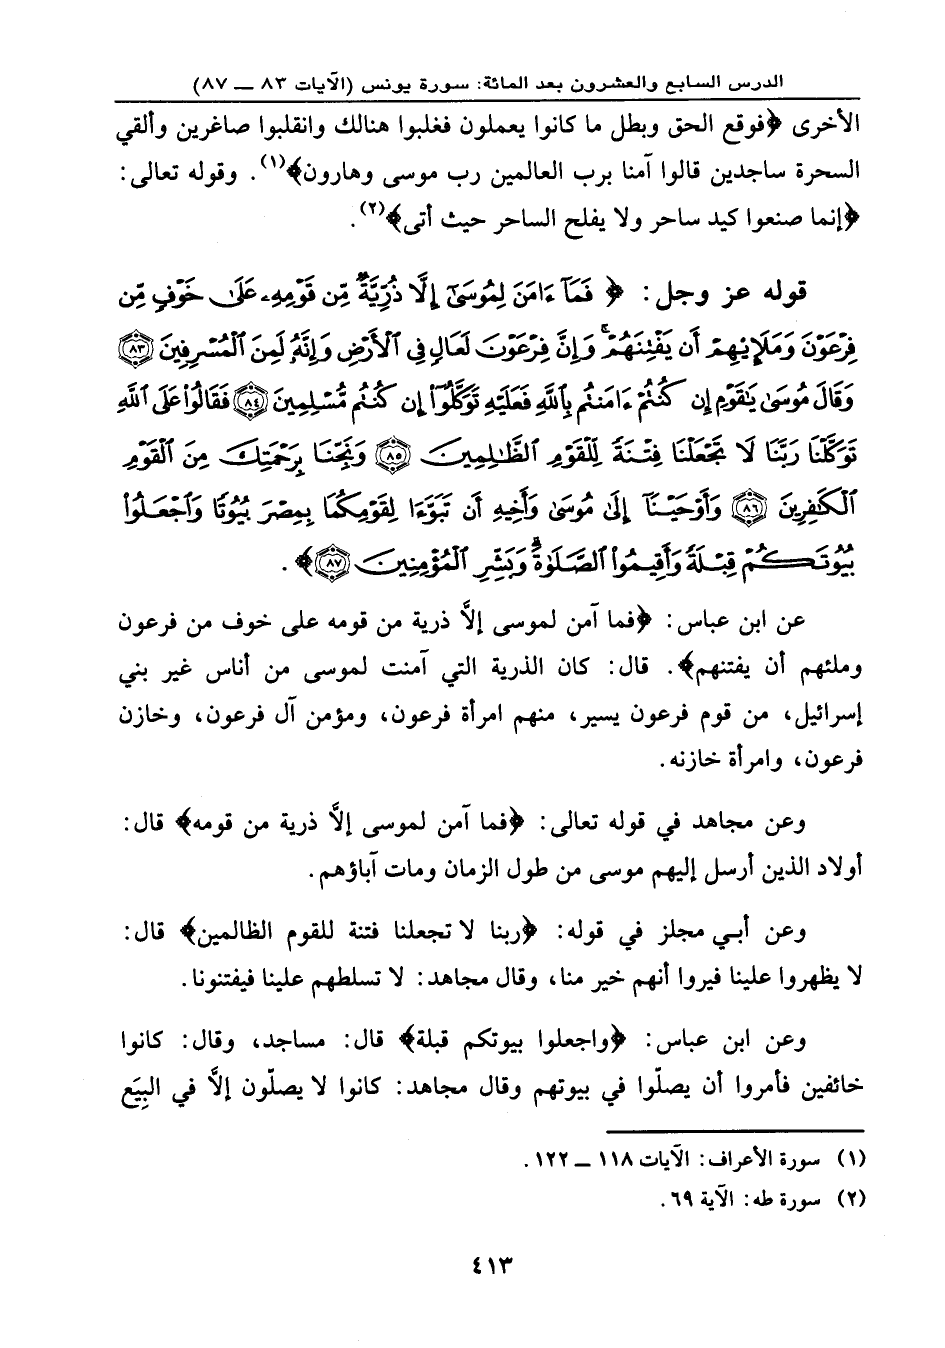 الدرس السابع والعشرون بعد المائة: سورة يونس (الآيات ٨٣ ــ ٨٧)
الأخرى ﴿فوقع الحق وبطل ما كانوا يعملون فغلبوا هنالك وانقلبوا صاغرين وألقي
السحرة ساجدين قالوا آمنا برب العالمين رب موسى وهارون﴾(١). وقوله تعالى:
﴿إنما صنعوا كيد ساحر ولا يفلح الساحر حيث أتى﴾(٢).
قوله عز وجل: ﴿ فَمَآ ءَامَنَ لِمُوسَىٰٓ إِلَّا ذُرِّيَّةٌ مِّن قَوْمِهِۦ عَلَىٰ خَوْفٍ مِّن
فِرْعَوْنَ وَمَلَإِيْهِمْ أَن يَفْتِنَهُمْ ۚ وَإِنَّ فِرْعَوْنَ لَعَالٍ فِى ٱلْأَرْضِ وَإِنَّهُۥ لَمِنَ ٱلْمُسْرِفِينَ ٨٣
وَقَالَ مُوسَىٰ يَٰقَوْمِ إِن كُنتُمْ ءَامَنتُم بِٱللَّهِ فَعَلَيْهِ تَوَكَّلُوٓا۟ إِن كُنتُم مُّسْلِمِينَ ٨٤ فَقَالُوا۟ عَلَى ٱللَّهِ
تَوَكَّلْنَا رَبَّنَا لَا تَجْعَلْنَا فِتْنَةً لِّلْقَوْمِ ٱلظَّٰلِمِينَ ٨٥ وَنَجِّنَا بِرَحْمَتِكَ مِنَ ٱلْقَوْمِ
ٱلْكَٰفِرِينَ ٨٦ وَأَوْحَيْنَآ إِلَىٰ مُوسَىٰ وَأَخِيهِ أَن تَبَوَّءَا لِقَوْمِكُمَا بِمِصْرَ بُيُوتًا وَٱجْعَلُوا۟
بُيُوتَكُمْ قِبْلَةً وَأَقِيمُوا۟ ٱلصَّلَوٰةَ ۗ وَبَشِّرِ ٱلْمُؤْمِنِينَ ٨٧ ﴾.
عن ابن عباس: ﴿فما آمن لموسى إلاَّ ذرية من قومه على خوف من فرعون
وملئهم أن يفتنهم﴾. قال: كان الذرية التي آمنت لموسى من أناس غير بني
إسرائيل، من قوم فرعون يسير، منهم امرأة فرعون، ومؤمن آل فرعون، وخازن
فرعون، وامرأة خازنه.
وعن مجاهد في قوله تعالى: ﴿فما آمن لموسى إلاَّ ذرية من قومه﴾ قال:
أولاد الذين أرسل إليهم موسى من طول الزمان ومات آباؤهم.
وعن أبي مجلز في قوله: ﴿ربنا لا تجعلنا فتنة للقوم الظالمين﴾ قال:
لا يظهروا علينا فيروا أنهم خير منا، وقال مجاهد: لا تسلطهم علينا فيفتنونا.
وعن ابن عباس: ﴿واجعلوا بيوتكم قبلة﴾ قال: مساجد، وقال: كانوا
خائفين فأمروا أن يصلّوا في بيوتهم وقال مجاهد: كانوا لا يصلّون إلاَّ في البِيَع
(١) سورة الأعراف: الآيات ١١٨ ــ ١٢٢.
(٢) سورة طه: الآية ٦٩.
٤١٣